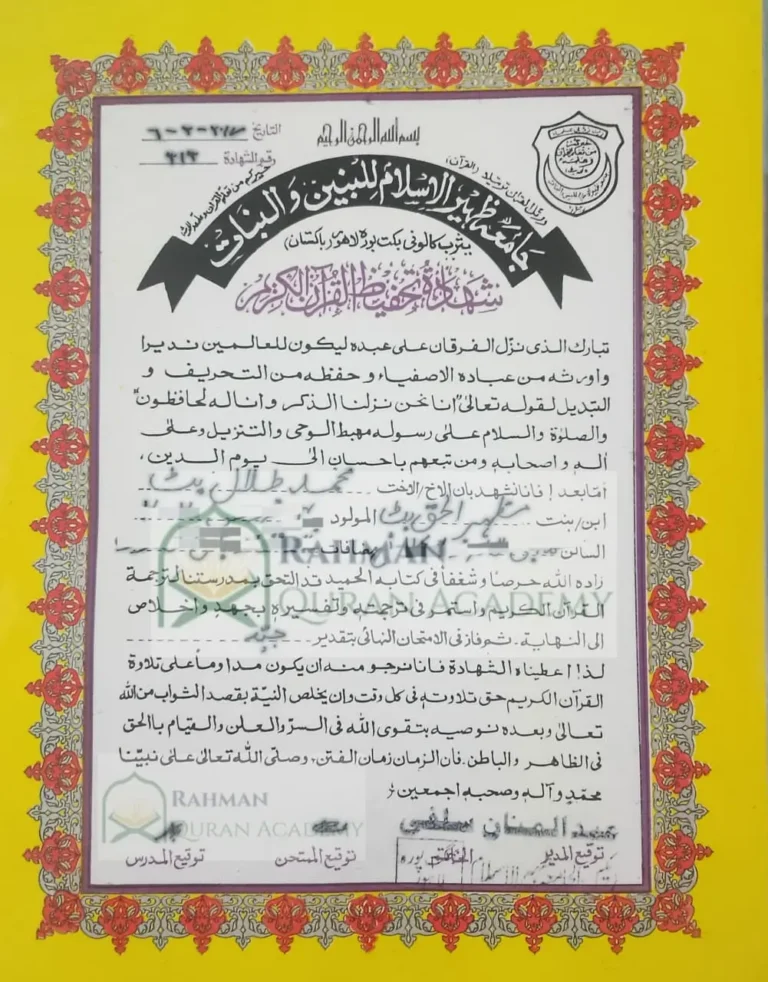 بسم الله الرحمن الرحيم
التاريخ
رقم الشهادة
ورتل القرآن ترتيلا (القرآن)
خيركم من تعلم القرآن وعلمه
جامعه ظهير الاسلام للبنين والبنات
يثرب كالونى بكت پوره لاهور (پاكستان)
شهادة تحفيظ القرآن الكريم
تبارك الذى نزّل الفرقان على عبده ليكون للعالمين نذيرا
واورثه من عباده الاصفياء و حفظه من التحريف و
التبديل لقوله تعالىٰ "انا نحن نزلنا الذكر و انا له لحافظون"
والصلوٰة والسلام على رسوله مهبط الوحى والتنزيل وعلى
آله و اصحابه ومن تبعهم باحسان الىٰ يوم الدين،
امّا بعد! فانا نشهد بان الاخ/الاخت محمد طلال بٹ
ابن/بنت ظهير الحق بٹ المولود
RAHMAN
QURAN ACADEMY
زاده الله حرصا و شغفا فى كتابه الحميد قد التحق بمدرستنا لترجمة
القرآن الكريم واستمر فى ترجمته وتفسيره بجهد واخلاص
الى النهاية. ثم فاز فى الامتحان النهائى بتقدير جيد
لذا اعطيناه الشهادة فانا نرجو منه ان يكون مداوما على تلاوة
القرآن الكريم حق تلاوته فى كل وقت وان يخلص النيّة بقصد الثواب من الله
تعالىٰ وبعده نوصيه بتقوى الله فى السرّ والعلن والقيام باالحق
فى الظاهر والباطن. فان الزمان زمان الفتن، وصلّى الله تعالىٰ على نبيّنا
محمّد وآله وصحبه اجمعين
RAHMAN
QURAN ACADEMY
عبد المنان سلفى
توقيع المدير
الختم
توقيع الممتحن
توقيع المدرس